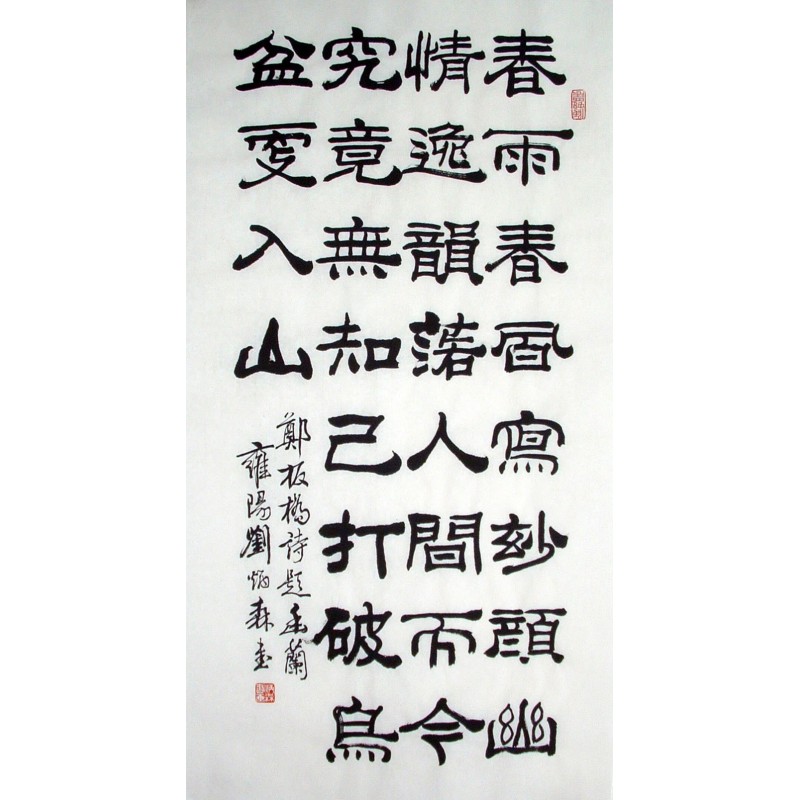 春雨春風寫玅顔幽
情逸韻落人間而今
究竟無知己打破烏
盆更入山
鄭板橋詩題幽蘭
雍陽劉炳森書